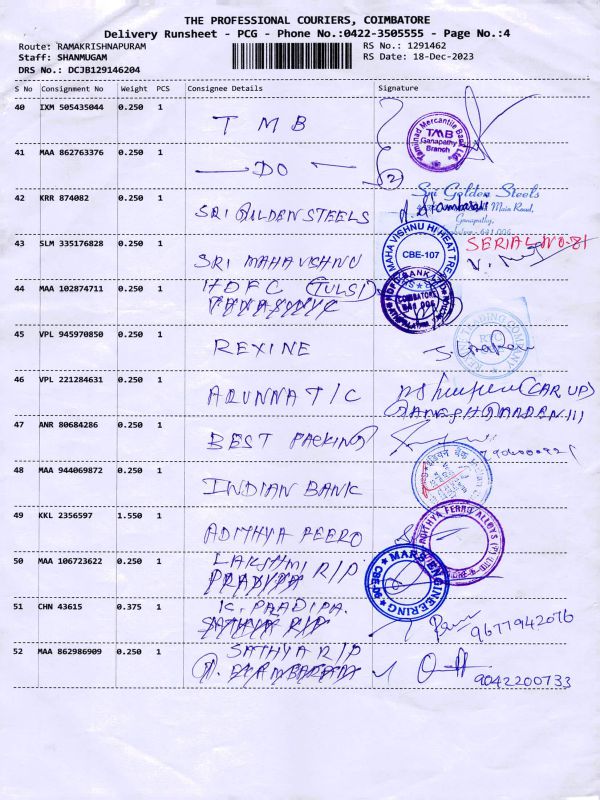 THE PROFESSIONAL COURIERS, COIMBATORE
Delivery Runsheet - PCG - Phone No.:0422-3505555 - Page No.:4
Route: RAMAKRISHNAPURAM
RS No.: 1291462
Staff: SHANMUGAM
RS Date: 18-Dec-2023
DRS No.: DCJB129146204
S No Consignment No Weight PCS Consignee Details Signature
40 IXM 505435044 0.250 1
TMB
Tamilnad Mercantile Bank Ltd. TMB Ganapathy Branch
41 MAA 862763376 0.250 1
DO
2
42 KRR 874082 0.250 1
SRI GULDEN STEELS
Sri Golden Steels
Main Road,
Ganapathy,
43 SLM 335176828 0.250 1
SRI MAHAVISHNU
MAHA VISHNU HI HEAT TREAT CBE-107
SERIAL NO-81
44 MAA 102874711 0.250 1
HDFC (TULSI)
HDFC BANK COIMBATORE 641 006
45 VPL 945970850 0.250 1
REXINE
TRADING COMPANY RTC
46 VPL 221284631 0.250 1
ARUNNA T/C
(CAR UP)
GANESH GARDEN III
47 ANR 80684286 0.250 1
BEST PACKING
48 MAA 944069872 0.250 1
INDIAN BANK
49 KKL 2356597 1.550 1
ADITHYA FERRO
ADITHYA FERRO ALLOYS (P) LTD
50 MAA 106723622 0.250 1
LAKSHMI R/P
MARS ENGINEERING
51 CHN 43615 0.375 1
K. PRADIPA.
SATHYA R/P
9677942076
52 MAA 862986909 0.250 1
SATHYA R/P
9042200733